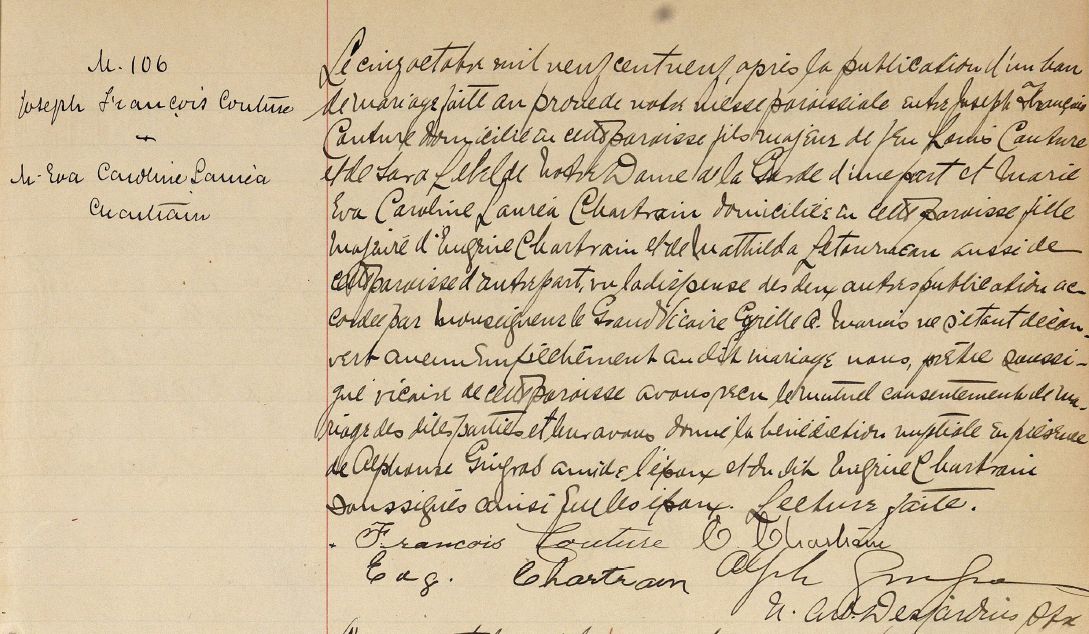 M. 106
Joseph François Couture
-
M. Eva Caroline Lauréa
Chartrain
Le cinq octobre mil neuf cent neuf, après la publication d'un ban
de mariage faite au prone de notre Messe paroissiale entre Joseph François
Couture domicilié en cette paroisse fils majeur de feu Louis Couture
et de Sara de Notre Dame de la Garde d'une part et Marie
Eva Caroline Lauréa Chartrain domiciliée en cette paroisse fille
majeure d'Eugène Chartrain et de Mathilda Letourneau aussi de
cette paroisse d'autre part, vu la dispense des deux autres publication ac-
cordée par Monseigneur le Grand Vicaire Cyrille A. Marois ne s'étant décou-
vert aucun empêchement au dit mariage nous, prêtre soussi-
gné vicaire de cette paroisse avons reçu le mutuel consentement de ma-
riage des dites parties et leur avons donné la bénédiction nuptiale en présence
de Alphonse Gingras ami de l'époux et du dit Eugène Chartrain
soussignés ainsi que les époux. Lecture faite.
François Couture E Chartrain
Eug. Chartrain Alph Gingras
Desjardins Ptr